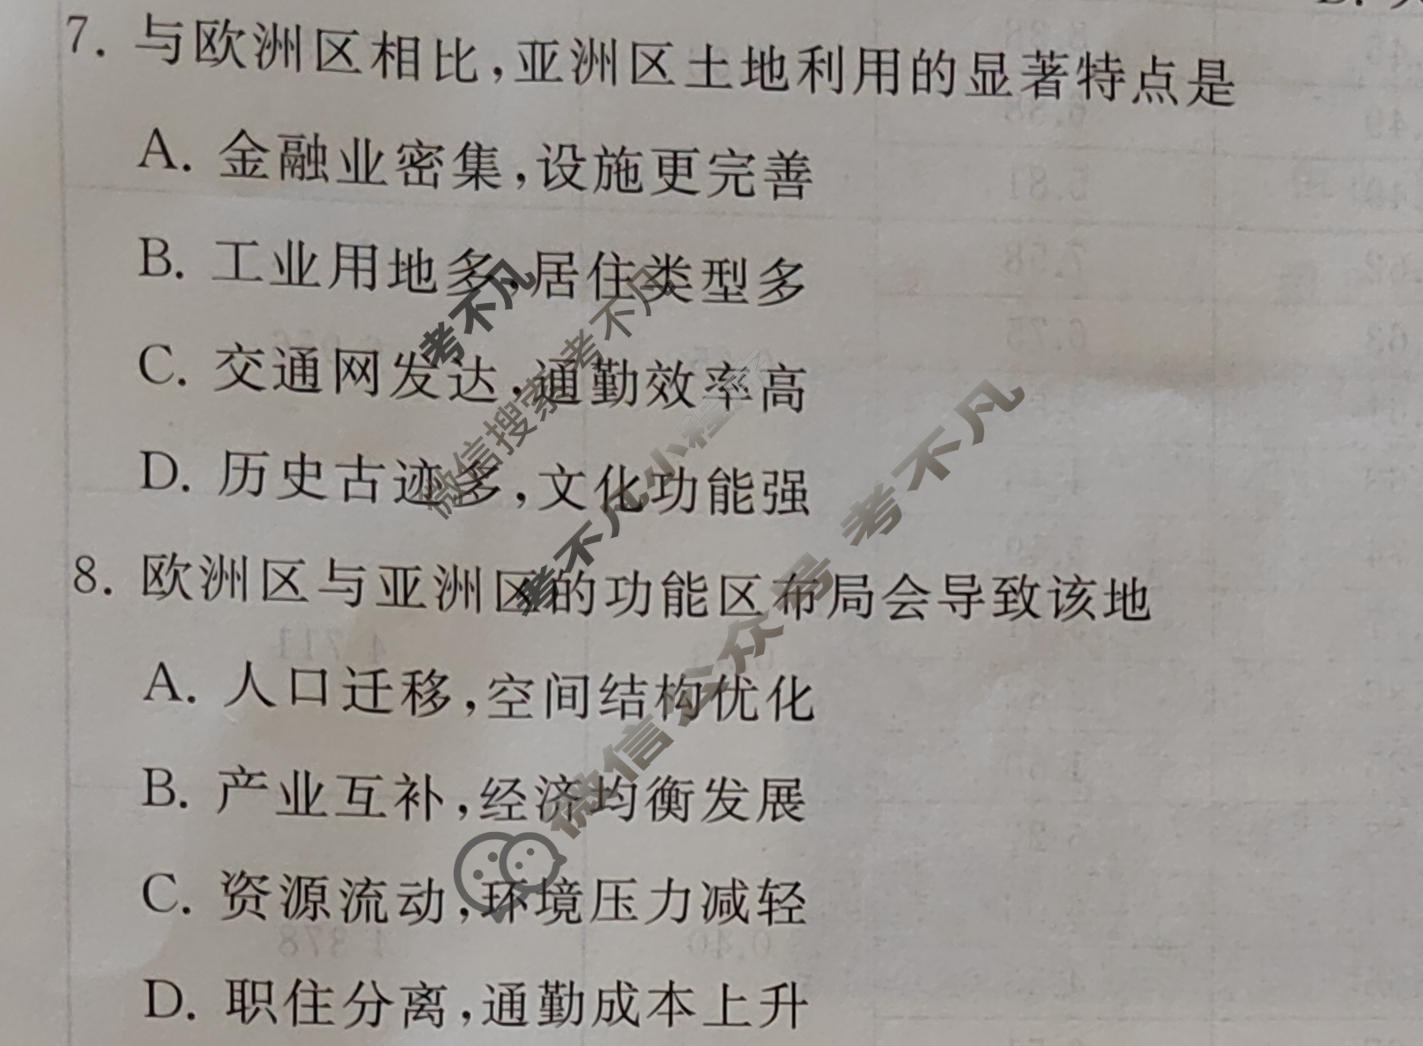 7. 与欧洲区相比,亚洲区土地利用的显著特点是
A. 金融业密集,设施更完善
B. 工业用地多,居住类型多
C. 交通网发达,通勤效率高
D. 历史古迹多,文化功能强
8. 欧洲区与亚洲区的功能区布局会导致该地
A. 人口迁移,空间结构优化
B. 产业互补,经济均衡发展
C. 资源流动,环境压力减轻
D. 职住分离,通勤成本上升
考不凡
微信搜索 考不凡
考不凡小程序
微信公众号 考不凡